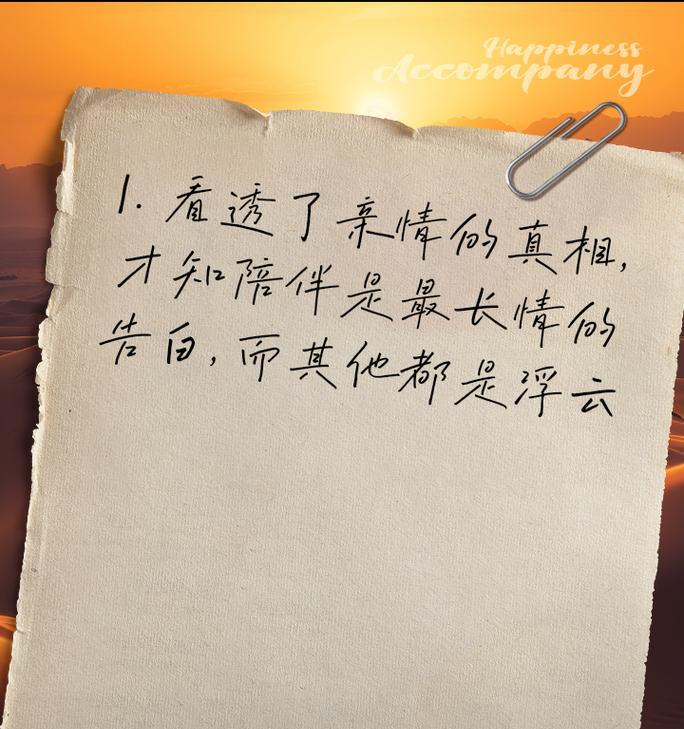 Happiness
Accompany
1. 看透了亲情的真相,
才知陪伴是最长情的
告白,而其他都是浮云